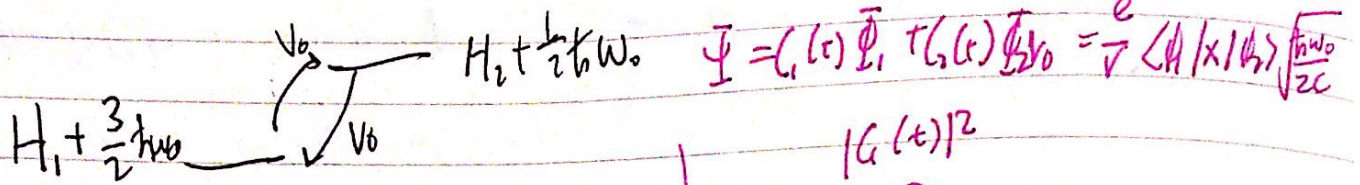 V₀ H₂ + ½ħω₀ Ψ = C₁(t) Φ₁ + C₂(t) Φ₂ V₀ = e/ <ϕ₁|x|ϕ₂> √(ħω₀/2C)
H₁ + 3/2 ħω₀ V₀ |C₁(t)|²